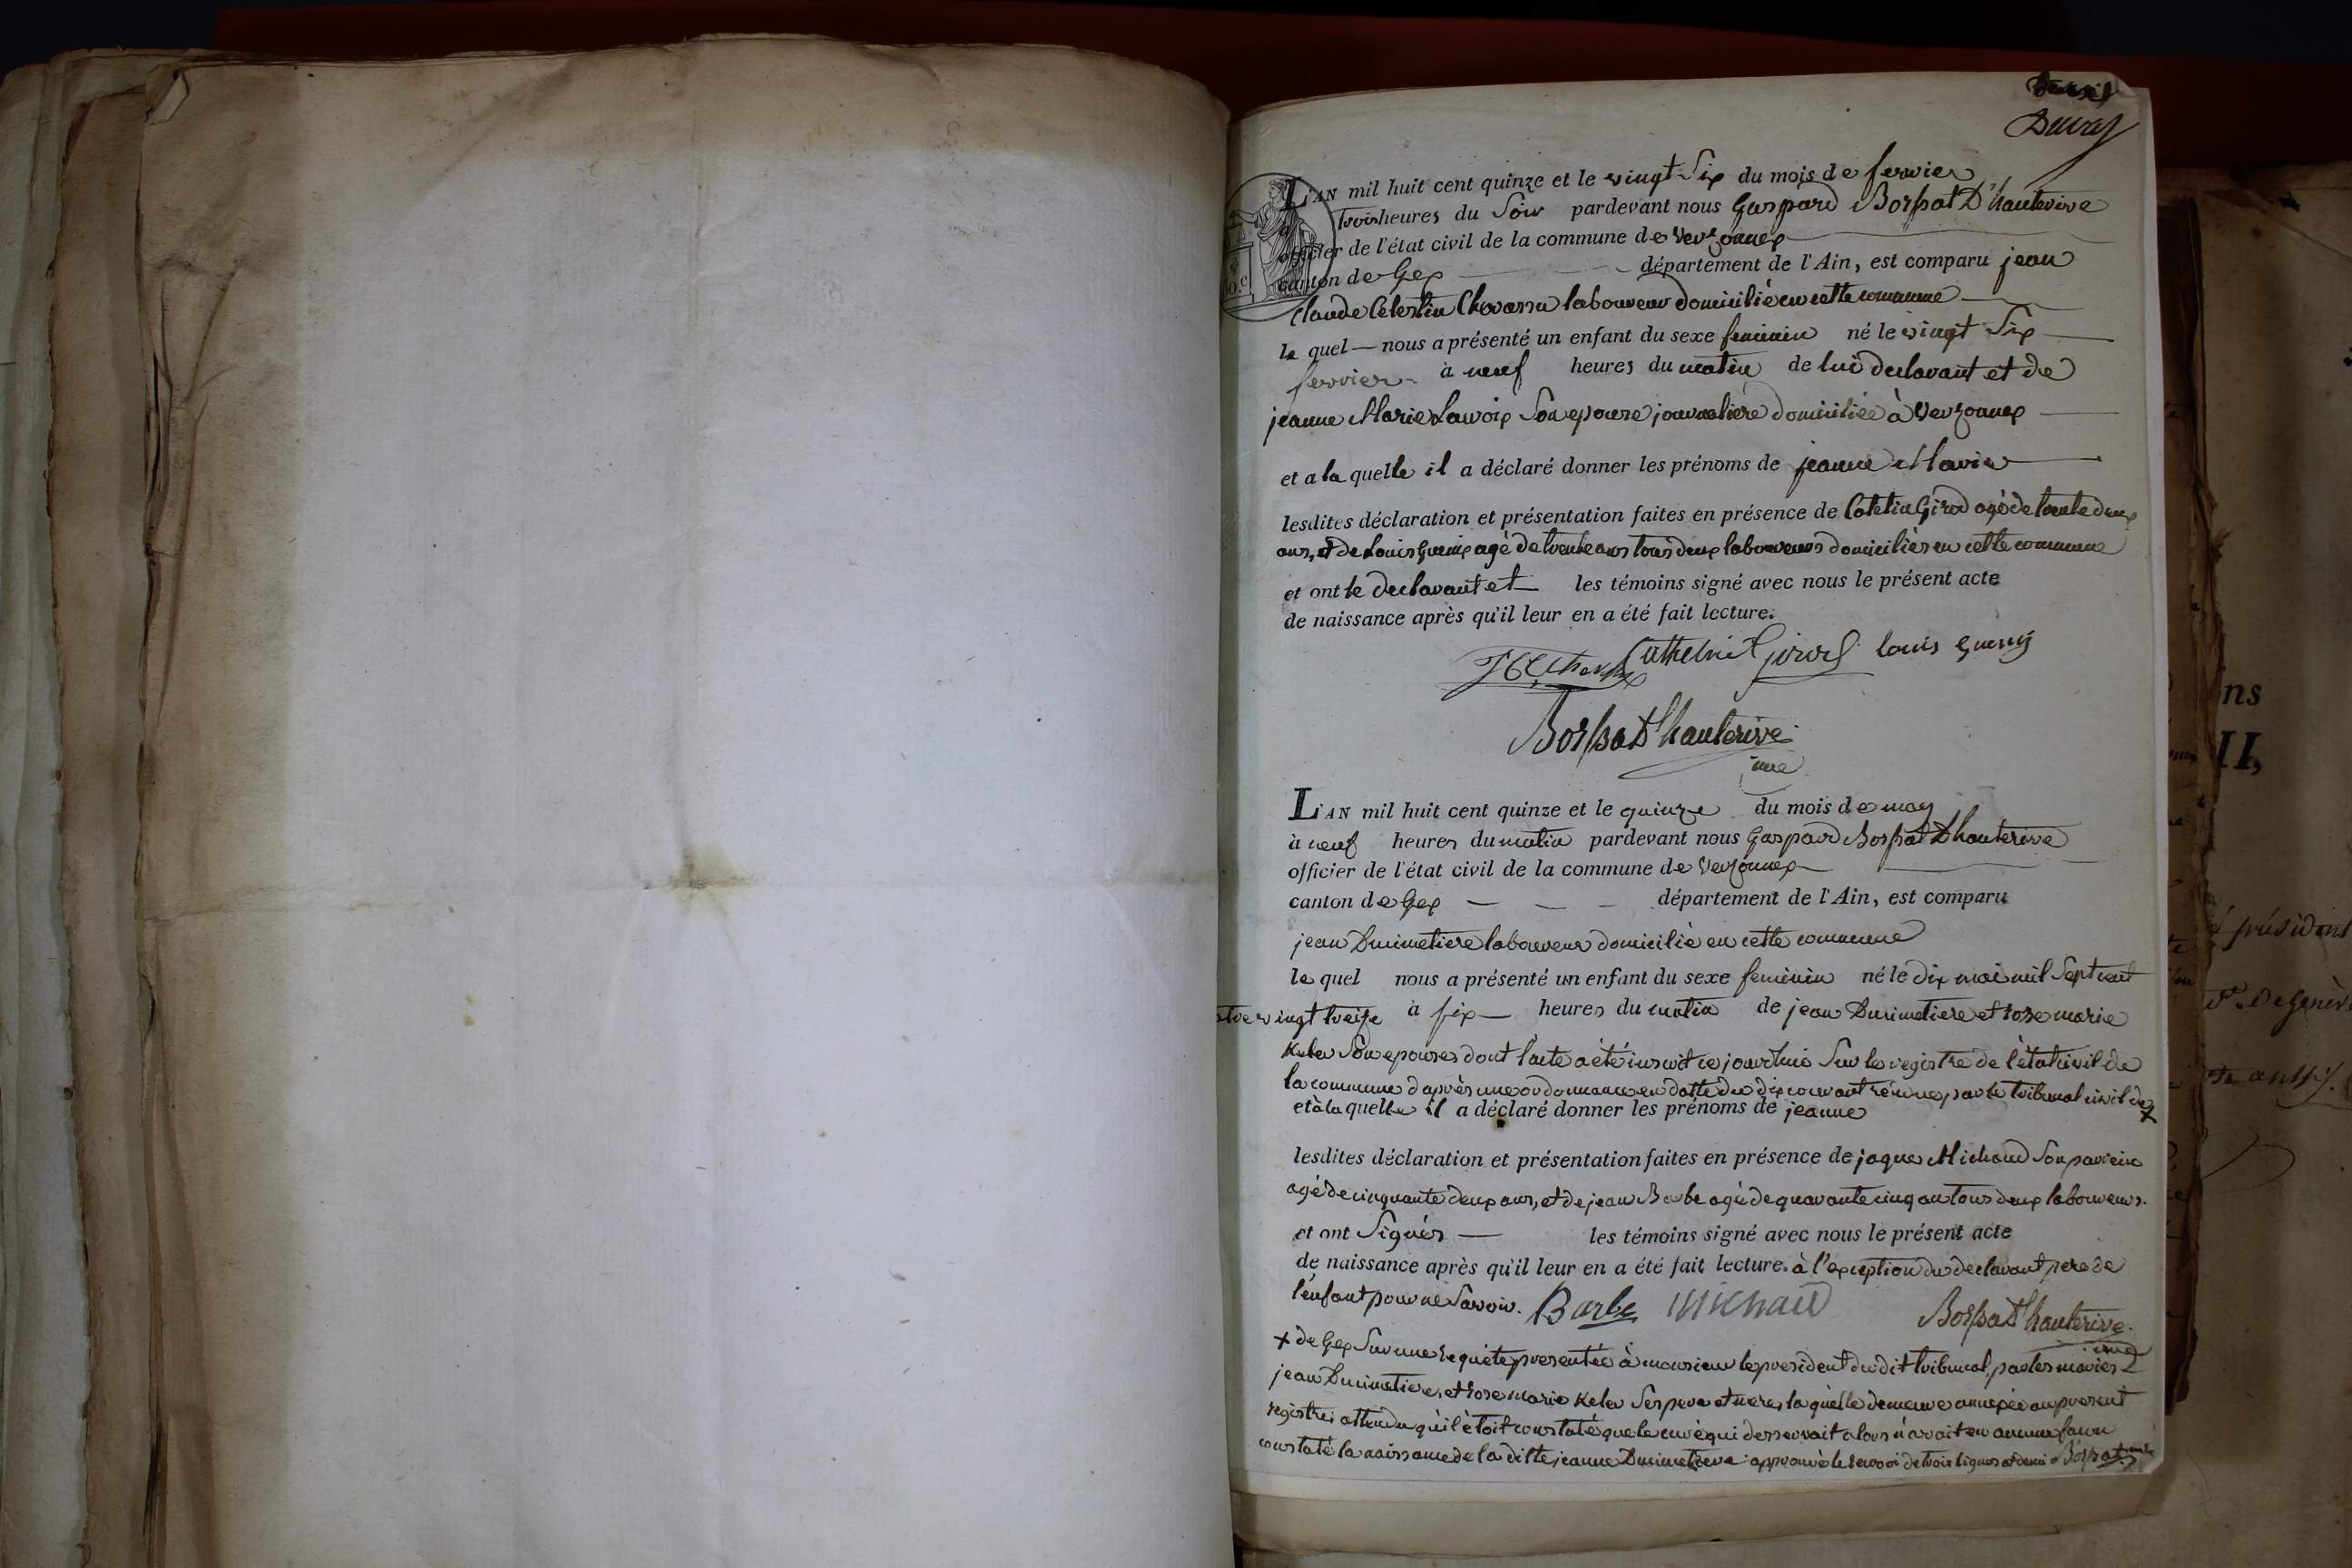 Duval
L'AN mil huit cent quinze et le vingt Six du mois de fevrier
à trois heures du Soir pardevant nous Gaspard Borssat D'hauterive
officier de l'état civil de la commune de Versonnex
canton de Gex département de l'Ain, est comparu jean
Claude Célestin Chavassu laboureur domicilié en cette commune
le quel nous a présenté un enfant du sexe feminin né le vingt Six
fevrier à neuf heures du matin de lui declarant et de
jeanne Marie Lavoix Son epouse journaliere domiciliée à Versonnex
et a la quelle il a déclaré donner les prénoms de jeanne Marie
lesdites déclaration et présentation faites en présence de Catelin Girod agé de trente deux
ans, et de Louis Guenix agé de trente ans tous deux laboureurs domiciliés en cette commune
et ont le declarant et les témoins signé avec nous le présent acte
de naissance après qu'il leur en a été fait lecture.
Cathelin Girod louis
Borssat D'hauterive
me
L'AN mil huit cent quinze et le quinze du mois de may
à neuf heures du matin pardevant nous Gaspard Borssat D'hauterive
officier de l'état civil de la commune de Versonnex
canton de Gex département de l'Ain, est comparu
jean Ducimetiere laboureur domicilié en cette commune
le quel nous a présenté un enfant du sexe feminin né le dix mai mil Sept cent
vingt treize à six heures du matin de jean Ducimetiere et rose marie
Keler Son epouse dont l'acte a été inscrit ce jourd'hui Sur le registre de l'état civil de
la commune d'après une ordonnance en datte du dix courant rendue par le tribunal civil de +
et à la quelle il a déclaré donner les prénoms de jeanne
lesdites déclaration et présentation faites en présence de jaque Michaud Son parrein
agé de cinquante deux ans, et de jean Barbe agé de quarante cinq an tous deux laboureurs.
et ont Signés les témoins signé avec nous le présent acte
de naissance après qu'il leur en a été fait lecture. à l'exception du declarant pere de
l'enfant pour ne Savoir. Barbe Michaud Borssat D'hauterive
+ de Gex Sur une requète presentée à monsieur le president dudit tribunal, par les mariés
jean Ducimetiere, et rose marie Keler Ses pere et mere, la quelle demeure annexée au present
registre; attendu qu'il étoit constaté que le curé qui desservait alors n'avait en aucune facon
constaté la naissance de la ditte jeanne Ducimetiere approuvé le renvoi de trois lignes et demi Borssat